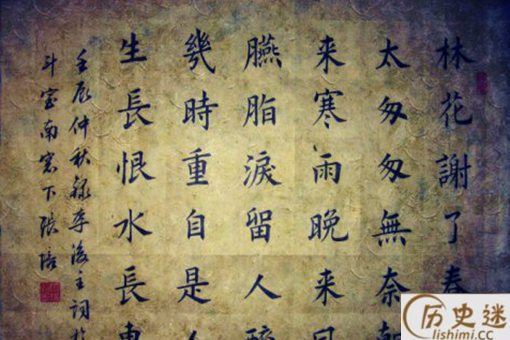 林花謝了春
太匆匆無奈朝
来寒雨晚来
臙脂淚留人醉
幾時重自是人
生長恨水長東
壬辰仲秋録李後主詞於
斗室南窓下
历史迷
lishimi.cc